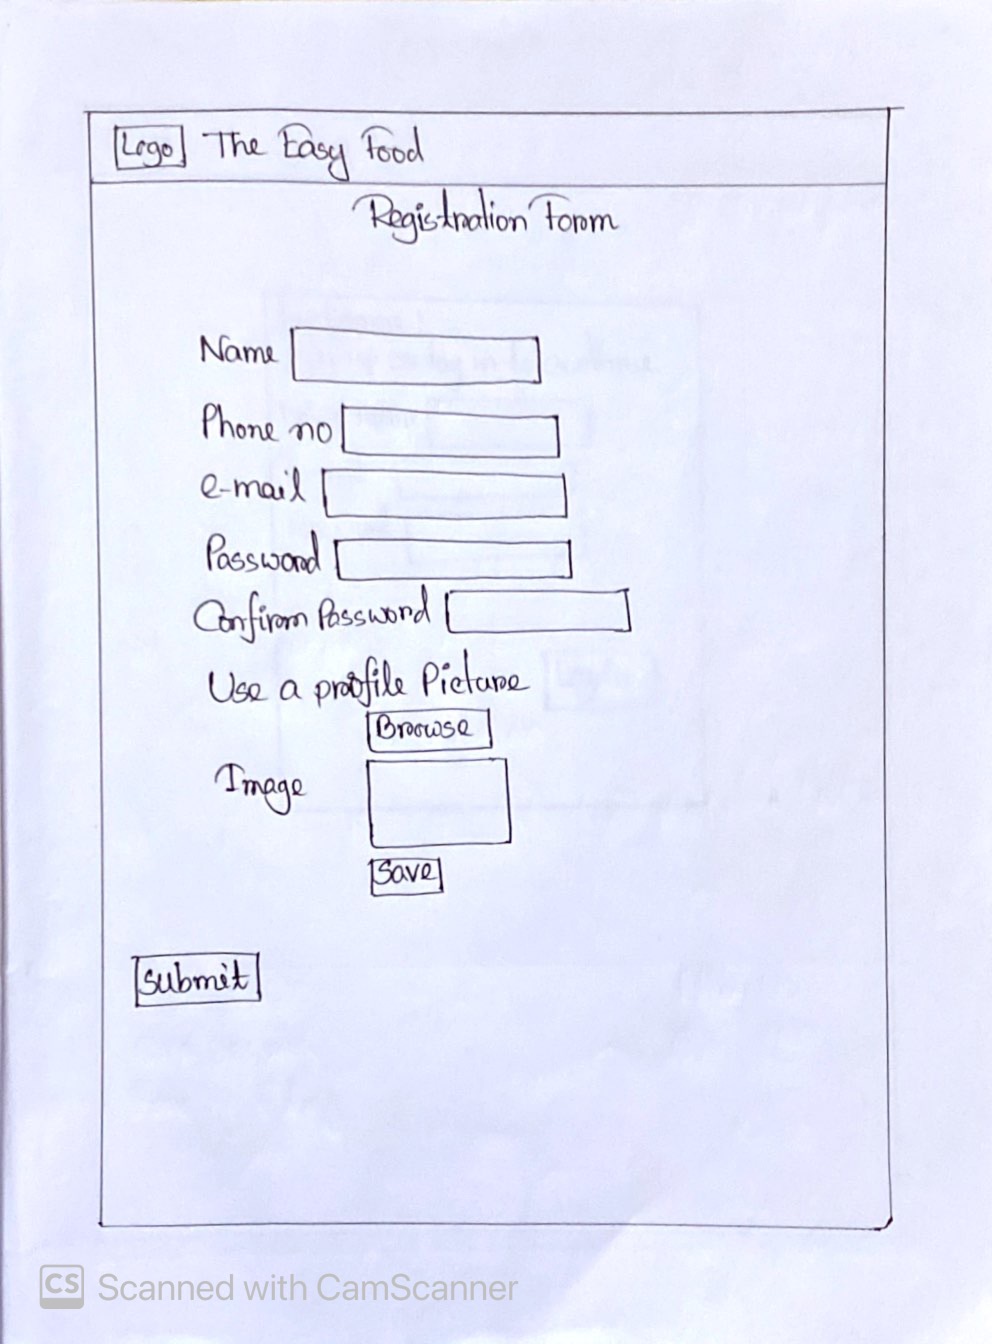 Logo The Easy Food
Registration Form
Name
Phone no
e-mail
Password
Confirm Password
Use a profile Picture
Browse
Image
Save
Submit
CS Scanned with CamScanner